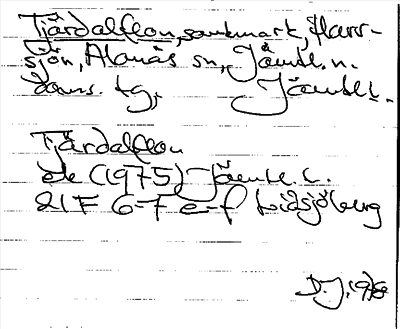 Tjärdalflon, sankmark, Harr-
sjön, Alanäs sn, Jämtl. n.
doms. tg, Jämtl. l.
Tjärdalflon
ek (1975) Jämtl. l.
21F 6-7 e-f Lidsjöberg
D.J. 1976